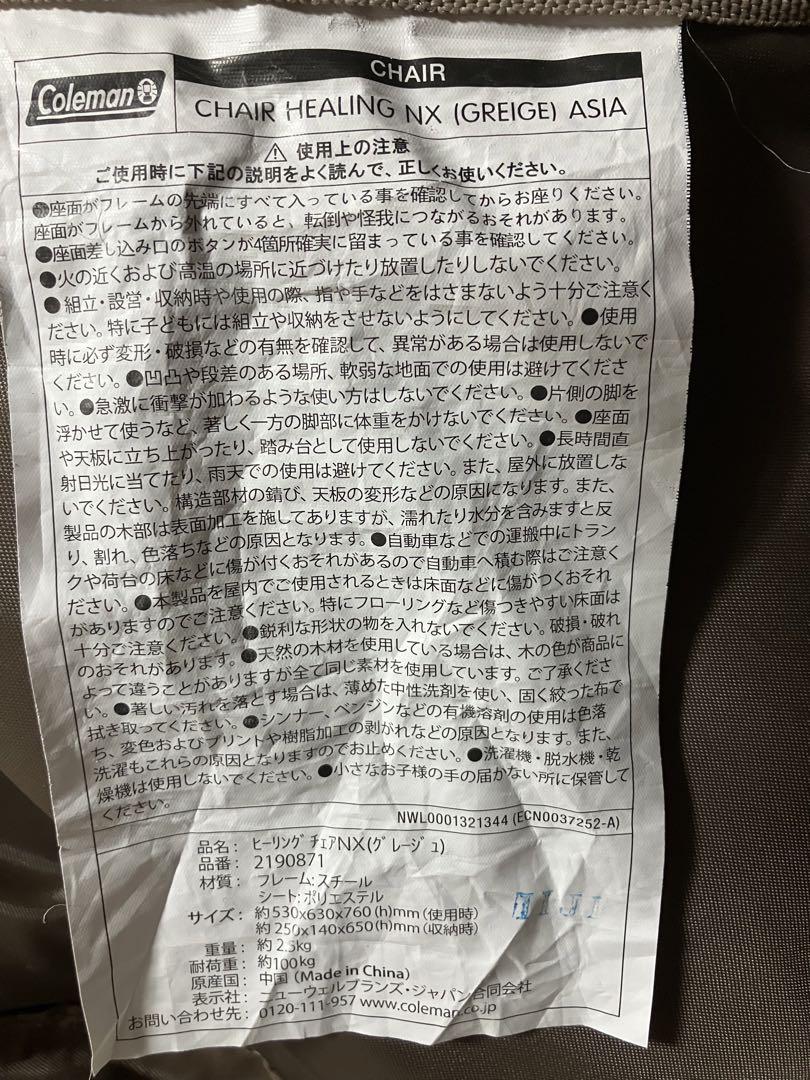 Coleman
CHAIR
CHAIR HEALING NX (GREIGE) ASIA
⚠ 使用上の注意
ご使用時に下記の説明をよく読んで、正しくお使いください。
●座面がフレームの先端にすべて入っている事を確認してからお座りください。
座面がフレームから外れていると、転倒や怪我につながるおそれがあります。
●座面差し込み口のボタンが4箇所確実に留まっている事を確認してください。
●火の近くおよび高温の場所に近づけたり放置したりしないでください。
●組立・設営・収納時や使用の際、指や手などをはさまないよう十分ご注意く
ださい。特に子どもには組立や収納をさせないようにしてください。●使用
時に必ず変形・破損などの有無を確認して、異常がある場合は使用しないで
ください。●凹凸や段差のある場所、軟弱な地面での使用は避けてくださ
い。●急激に衝撃が加わるような使い方はしないでください。●片側の脚を
浮かせて使うなど、著しく一方の脚部に体重をかけないでください。●座面
や天板に立ち上がったり、踏み台として使用しないでください。●長時間直
射日光に当てたり、雨天での使用は避けてください。また、屋外に放置しな
いでください。構造部材の錆び、天板の変形などの原因になります。また、
製品の木部は表面加工を施してありますが、濡れたり水分を含みますと反
り、割れ、色落ちなどの原因となります。●自動車などでの運搬中にトラン
クや荷台の床などに傷が付くおそれがあるので自動車へ積む際はご注意く
ださい。●本製品を屋内でご使用されるときは床面などに傷がつくおそれ
がありますのでご注意ください。特にフローリングなど傷つきやすい床面は
十分ご注意ください。●鋭利な形状の物を入れないでください。破損・破れ
のおそれがあります。●天然の木材を使用している場合は、木の色が商品に
よって違うことがありますが全て同じ素材を使用しています。ご了承くださ
い。●著しい汚れを落とす場合は、薄めた中性洗剤を使い、固く絞った布で
拭き取ってください。●シンナー、ベンジンなどの有機溶剤の使用は色落
ち、変色およびプリントや樹脂加工の剥がれなどの原因となります。また、
洗濯もこれらの原因となりますのでお止めください。●洗濯機・脱水機・乾
燥機は使用しないでください。●小さなお子様の手の届かない所に保管して
ください。
NWL0001321344 (ECN0037252-A)
品名: ﾋｰﾘﾝｸﾞﾁｪｱNX(ｸﾞﾚｰｼﾞｭ)
品番: 2190871
材質: フレーム:スチール
シート:ポリエステル
サイズ: 約530x630x760(h)mm(使用時)
約250x140x650(h)mm(収納時)
重量: 約2.5kg
耐荷重: 約100kg
原産国: 中国 (Made in China)
表示社: ニューウェルブランズ・ジャパン合同会社
お問い合わせ先: 0120-111-957 www.coleman.co.jp